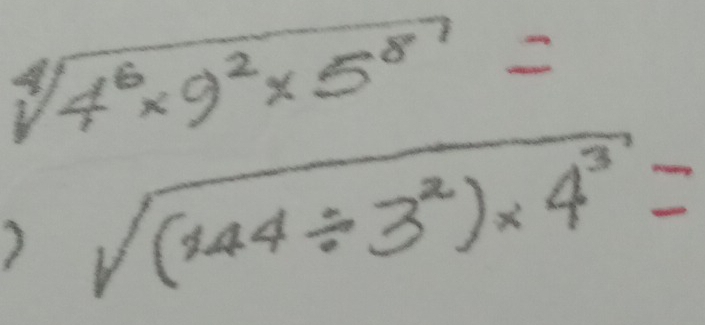 ∜(4⁶×9²×5⁸) =
) √((144÷3²)×4³) =